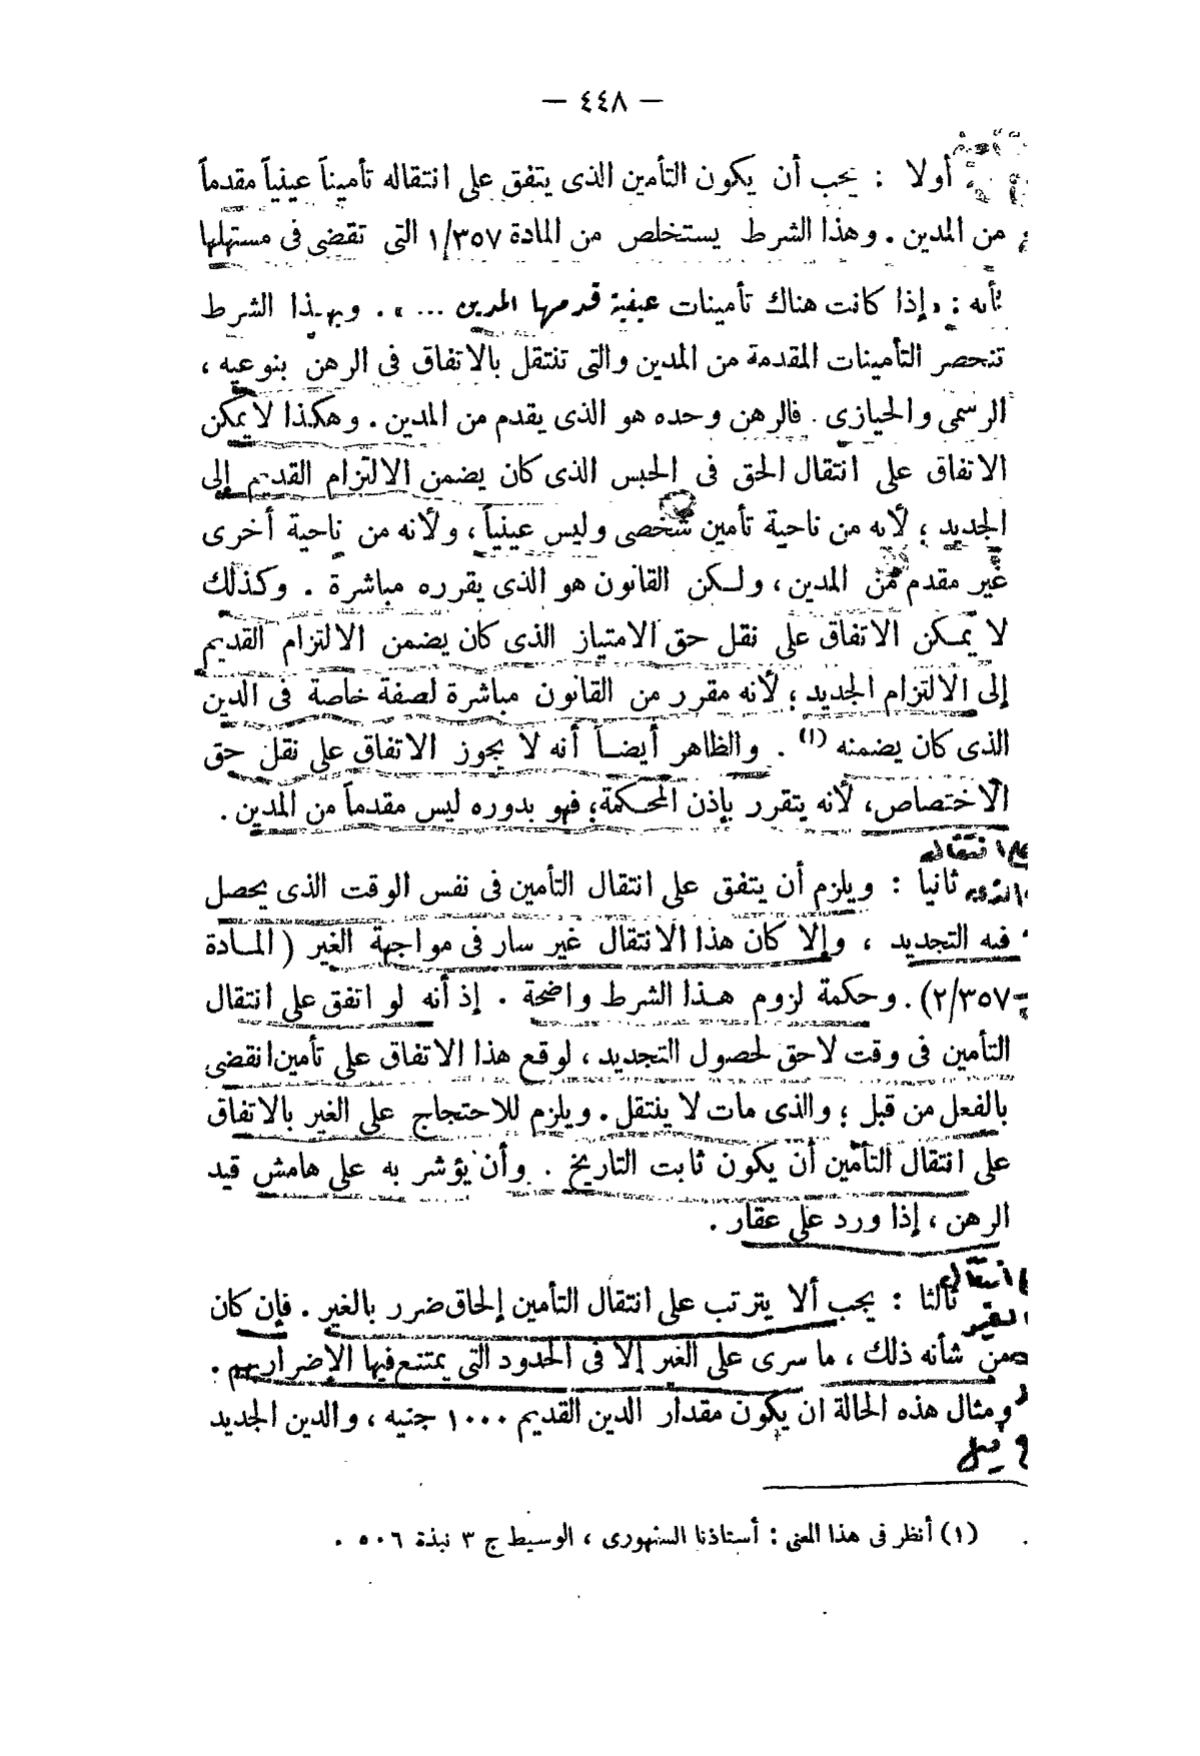 — ٤٤٨ —
أولا : يجب أن يكون التأمين الذى يتفق على انتقاله تأميناً عينياً مقدماً
من المدين . وهذا الشرط يستخلص من المادة ١/٣٥٧ التى تقضى فى مستهلها
بأنه : «إذا كانت هناك تأمينات عينية قدمها المدين ... » . وبهذا الشرط
تنحصر التأمينات المقدمة من المدين والتى تنتقل بالاتفاق فى الرهن بنوعيه ،
الرسمى والحيازى . فالرهن وحده هو الذى يقدم من المدين . وهكذا لا يمكن
الاتفاق على انتقال الحق فى الحبس الذى كان يضمن الالتزام القديم إلى
الجديد ؛ لأنه من ناحية تأمين شخصى وليس عينياً ، ولأنه من ناحية أخرى
غير مقدم من المدين ، ولكن القانون هو الذى يقرره مباشرة . وكذلك
لا يمكن الاتفاق على نقل حق الامتياز الذى كان يضمن الالتزام القديم
إلى الالتزام الجديد ؛ لأنه مقرر من القانون مباشرة لصفة خاصة فى الدين
الذى كان يضمنه (١) . والظاهر أيضاً أنه لا يجوز الاتفاق على نقل حق
الاختصاص ، لأنه يتقرر بإذن المحكمة ؛ فهو بدوره ليس مقدماً من المدين .
انتقاله
ثانيا : ويلزم أن يتفق على انتقال التأمين فى نفس الوقت الذى يحصل
فيه التجديد ، وإلا كان هذا الانتقال غير سار فى مواجهة الغير ( المادة
٢/٣٥٧) . وحكمة لزوم هذا الشرط واضحة . إذ أنه لو اتفق على انتقال
التأمين فى وقت لاحق لحصول التجديد ، لوقع هذا الاتفاق على تأمين انقضى
بالفعل من قبل ؛ والذى مات لا ينتقل . ويلزم للاحتجاج على الغير بالاتفاق
على انتقال التأمين أن يكون ثابت التاريخ . وأن يؤشر به على هامش قيد
الرهن ، إذا ورد على عقار .
ثالثا : يجب ألا يترتب على انتقال التأمين إلحاق ضرر بالغير . فإن كان
من شأنه ذلك ، ما سرى على الغير إلا فى الحدود التى يمتنع فيها الإضرار بهم .
ومثال هذه الحالة ان يكون مقدار الدين القديم ١٠٠٠ جنيه ، والدين الجديد
(١) أنظر فى هذا المعنى : أستاذنا السنهورى ، الوسيط ج ٣ نبذة ٥٠٦ .